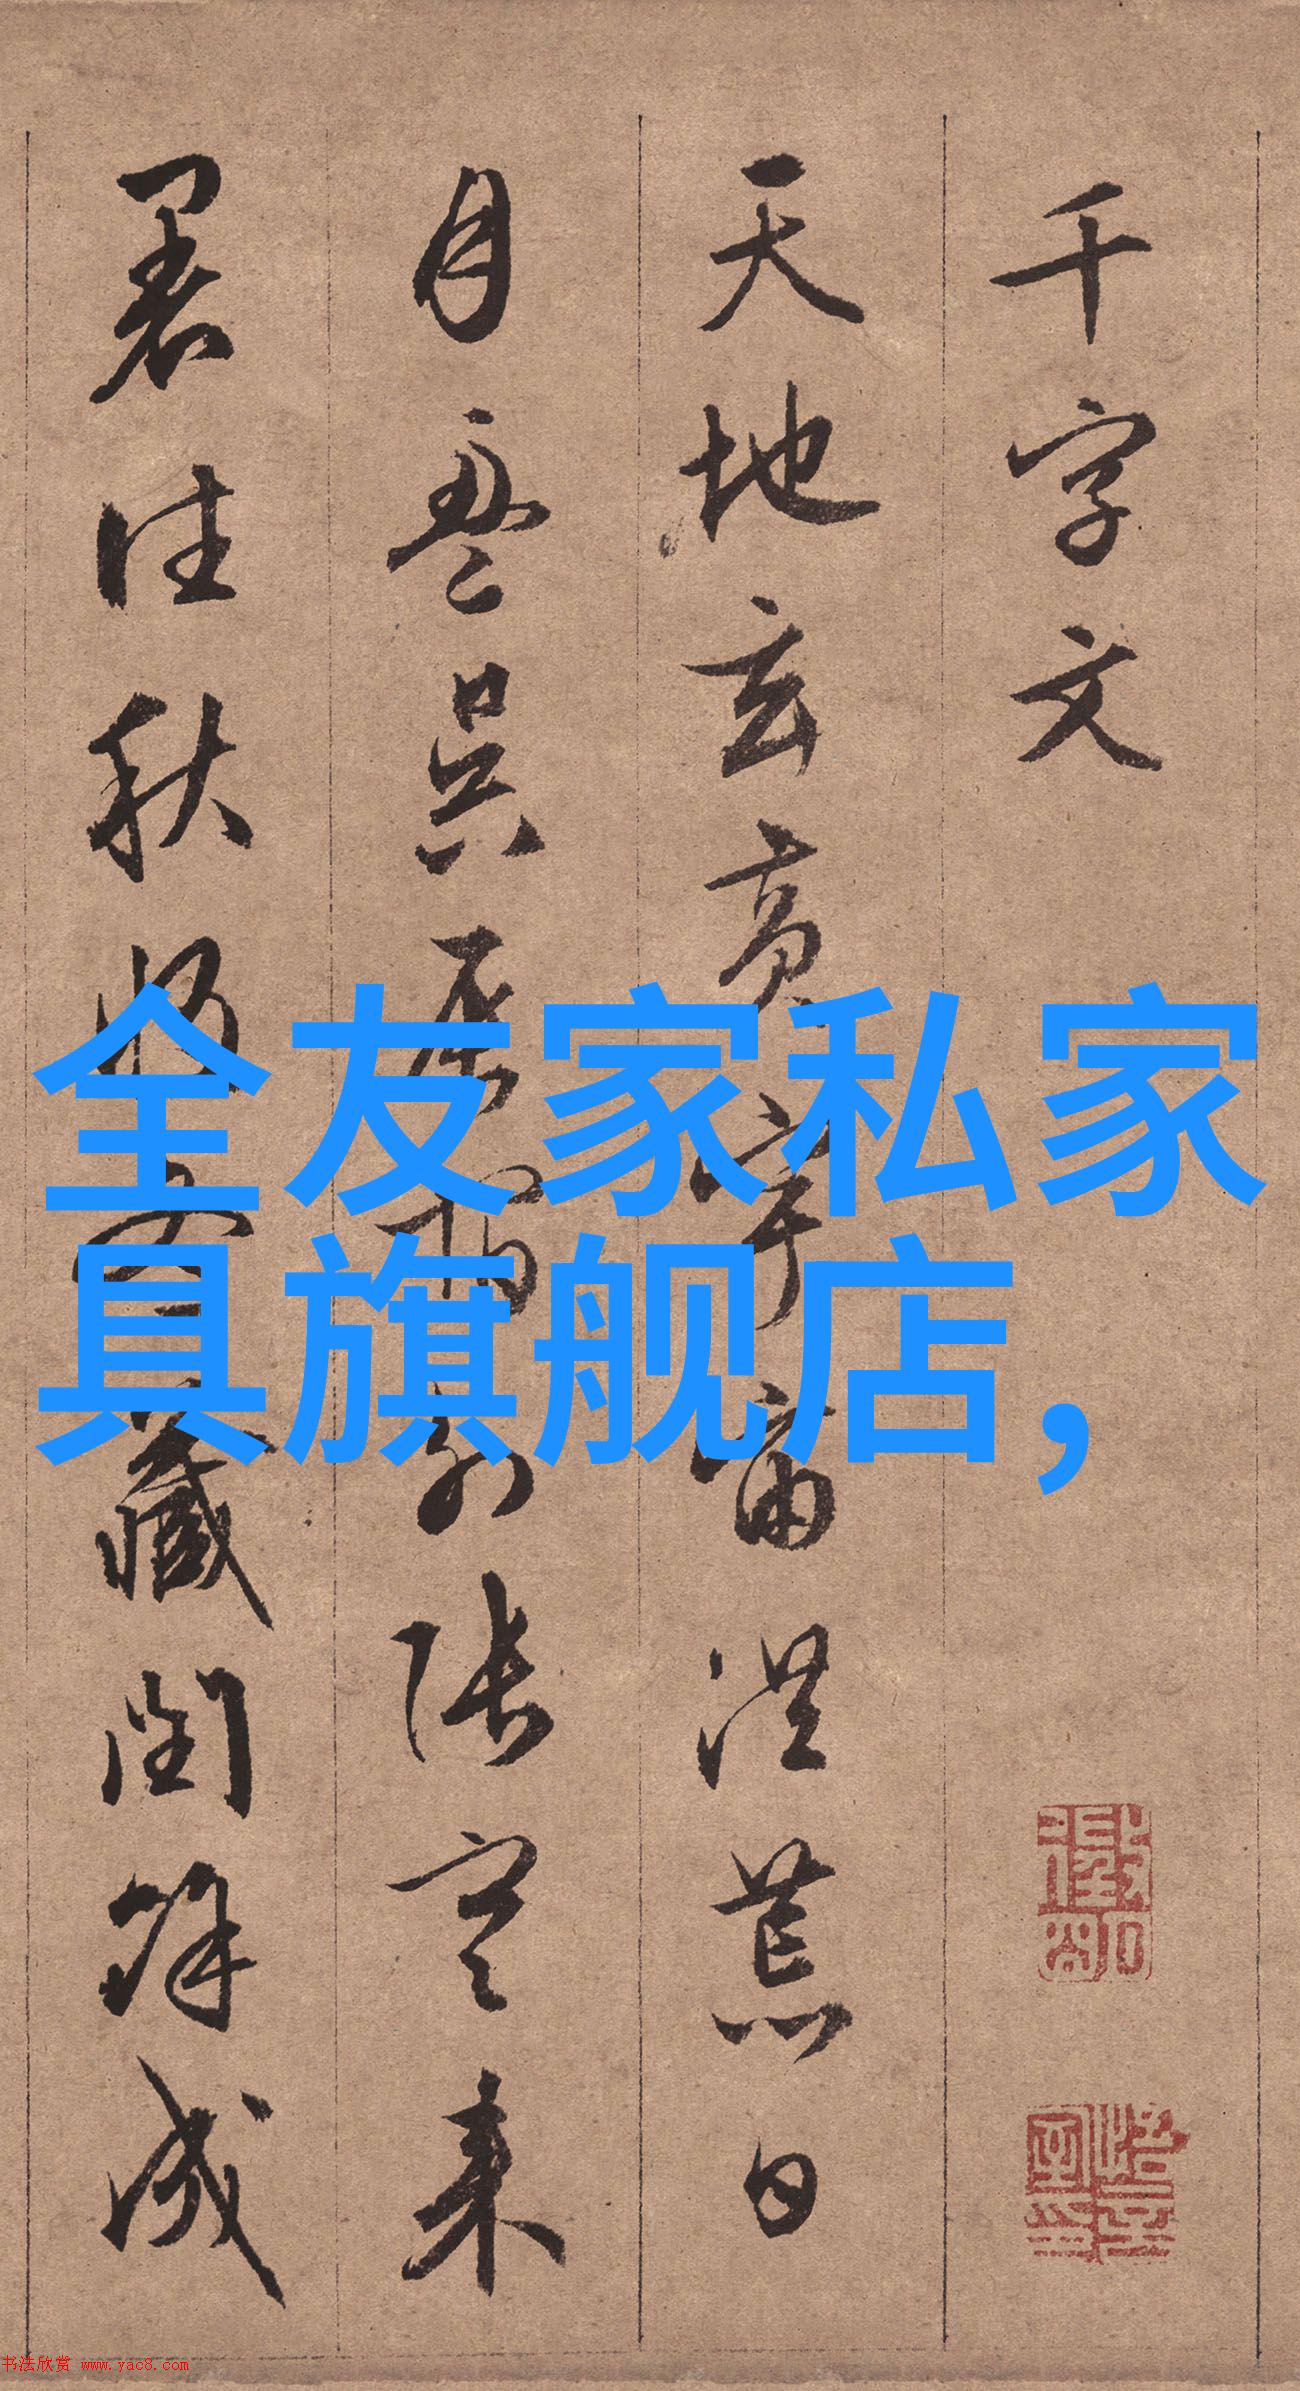 千字文
天地玄黄宇宙洪荒日
月盈昃辰宿列张寒来
暑往秋收冬藏闰馀成
全友家私家
具旗舰店，
书法欣赏 www.yac8.com